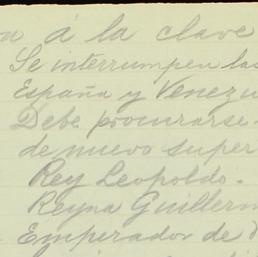 á la clave
Se interrumpen las
España y Venezu
Debe procurarse
de nuevo super
Rey Leopoldo.
Reyna Guillerm
Emperador de